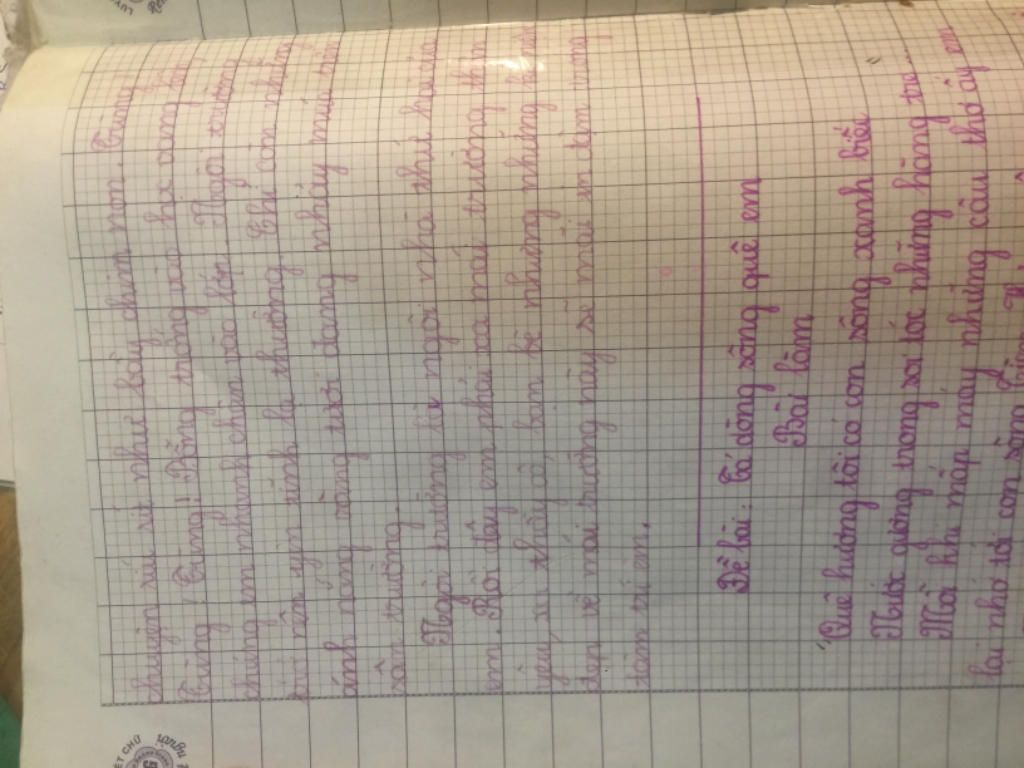 chuyện ríu rít như bầy chim non. Tùng!
Tùng! Tùng! Trống vào học vang lên
chúng em nhanh chân vào lớp. Ngôi trường
trở nên yên tĩnh lạ thường. Chỉ còn những
ánh nắng vàng tươi đang nhảy múa trên
sân trường.
Ngôi trường là ngôi nhà thứ hai của
em. Rồi đây em phải xa mái trường thân
yêu, xa thầy cô, bạn bè nhưng những kỉ niệm
đẹp về mái trường này sẽ mãi in đậm trong
tâm trí em.
Đề bài: Tả dòng sông quê em
Bài làm
"Quê hương tôi có con sông xanh biếc
Nước gương trong soi tóc những hàng tre..."
Mỗi khi mấp máy những câu thơ ấy em
lại nhớ tới con sông